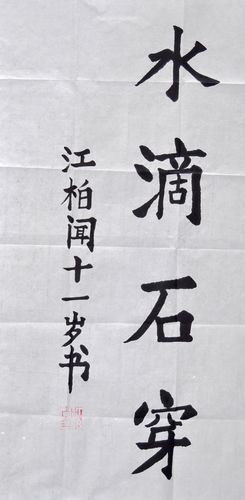 水滴石穿
江柏闻十一岁书